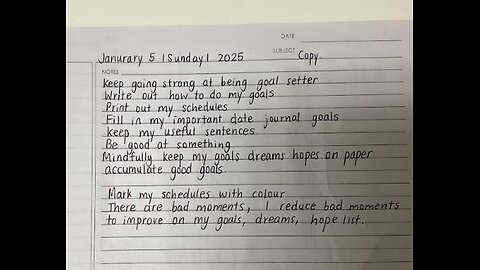 DATE
SUBJECT Copy.
Janurary 5 |Sunday| 2025
NOTES
Keep going strong at being goal setter
Write out how to do my goals
Print out my schedules
Fill in my important date journal goals
keep my useful sentences.
Be good at something
Mindfully keep my goals dreams hopes on paper
accumulate good goals.
Mark my schedules with colour
There are bad moments, I reduce bad moments
to improve on my goals, dreams, hope list.